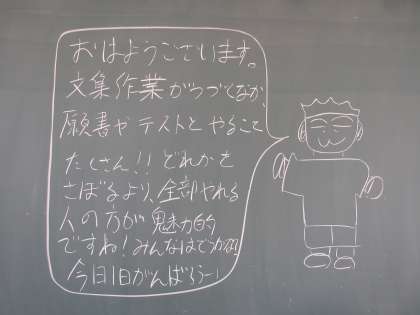 おはようございます。
文集作業がつづくなか、
願書や テストと やること
たくさん!! どれかを
さぼるより、全部やれる
人の方が 魅力的
ですね! みんなはどうかな?
今日1日がんばろうー!